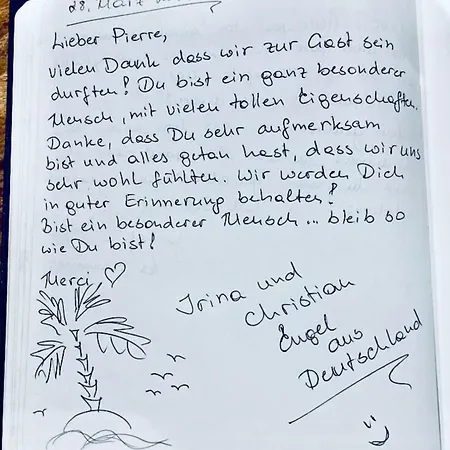 28. März
Lieber Pierre,
vielen Dank dass wir zur Gast sein
durften! Du bist ein ganz besonderer
Mensch, mit vielen tollen Eigenschaften.
Danke, dass Du sehr aufmerksam
bist und alles getan hast, dass wir uns
sehr wohl fühlten. Wir werden Dich
in guter Erinnerung behalten!
Bist ein besonderer Mensch... bleib so
wie Du bist!
Merci ♡
Irina und
Christian
Engel
aus
Deutschland